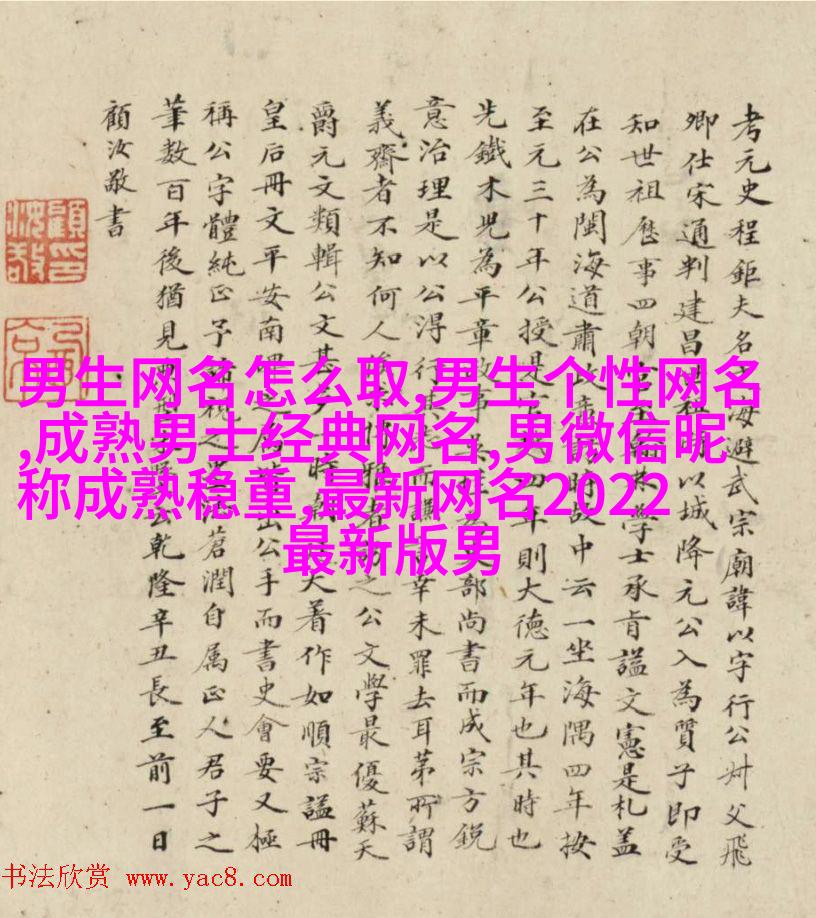 考元史程鉅夫名文海避武宗廟諱以字行公叔父飛
卿仕宋通判建昌世祖時以城降元公入為質子即受
知世祖歷事四朝官至翰林學士承旨謚文憲是札蓋
在公為閩海道肅政廉訪時故中云一坐海隅四年按
至元三十年公授是官四年則大德元年也其時也
先鐵木兒為平章政事部尚書而成宗方銳
意治理是以公得行其志而讓辛未罪去耳苐所謂
義齋者不知何人公文學最優蘇天
爵元文類輯公文甚大著作如順宗謚冊
皇后冊文平安南碑出公手而書史會要又極
稱公字體純正予諦視之蒼潤自属正人君子之
筆數百年後猶見乾隆辛丑長至前一日
顧汝敬書
顧印汝敬
男生网名怎么取,男生个性网名
,成熟男士经典网名,男微信昵
称成熟稳重,最新网名2022
最新版男
书法欣赏 www.yac8.com